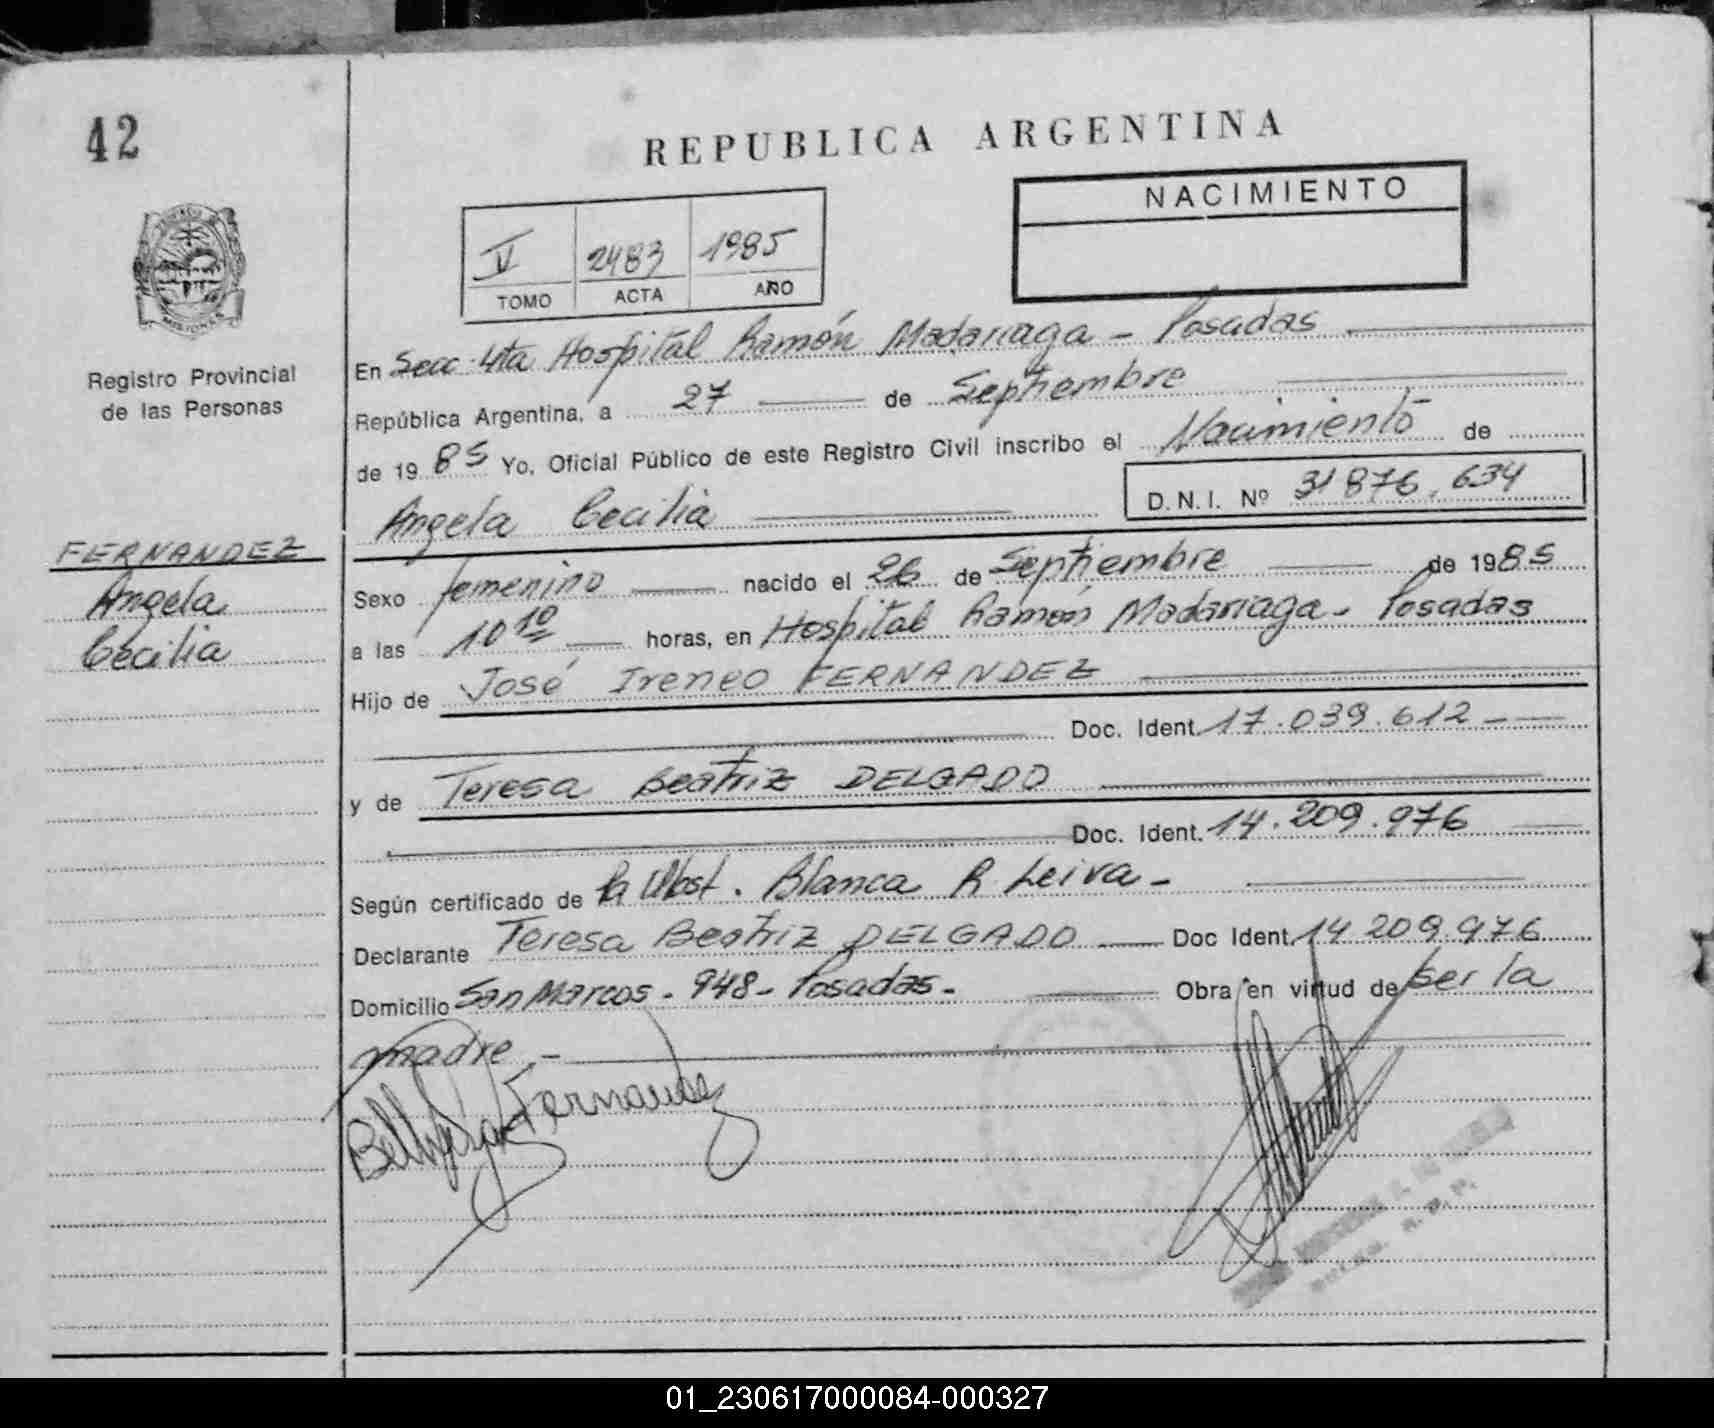 42
REPUBLICA ARGENTINA
NACIMIENTO
V 2483 1985
TOMO ACTA AÑO
MISIONES
Registro Provincial
de las Personas
En Secc 4ta Hospital Ramón Madariaga - Posadas
República Argentina, a 27 de Septiembre
de 1985 Yo, Oficial Público de este Registro Civil inscribo el Nacimiento de
Angela Cecilia D.N.I. Nº 31876.634
FERNANDEZ
Angela
Cecilia
Sexo femenino nacido el 26 de Septiembre de 1985
a las 10 10 horas, en Hospital Ramón Madariaga - Posadas
Hijo de José Ireneo FERNANDEZ
Doc. Ident. 17.039.612 -
y de Teresa Beatriz DELGADO
Doc. Ident. 14.209.976
Según certificado de la Obst. Blanca R Leiva -
Declarante Teresa Beatriz DELGADO Doc Ident. 14 209.976
Domicilio San Marcos - 948 - Posadas - Obra en virtud de ser la
madre -
Fernandez
01_230617000084-000327